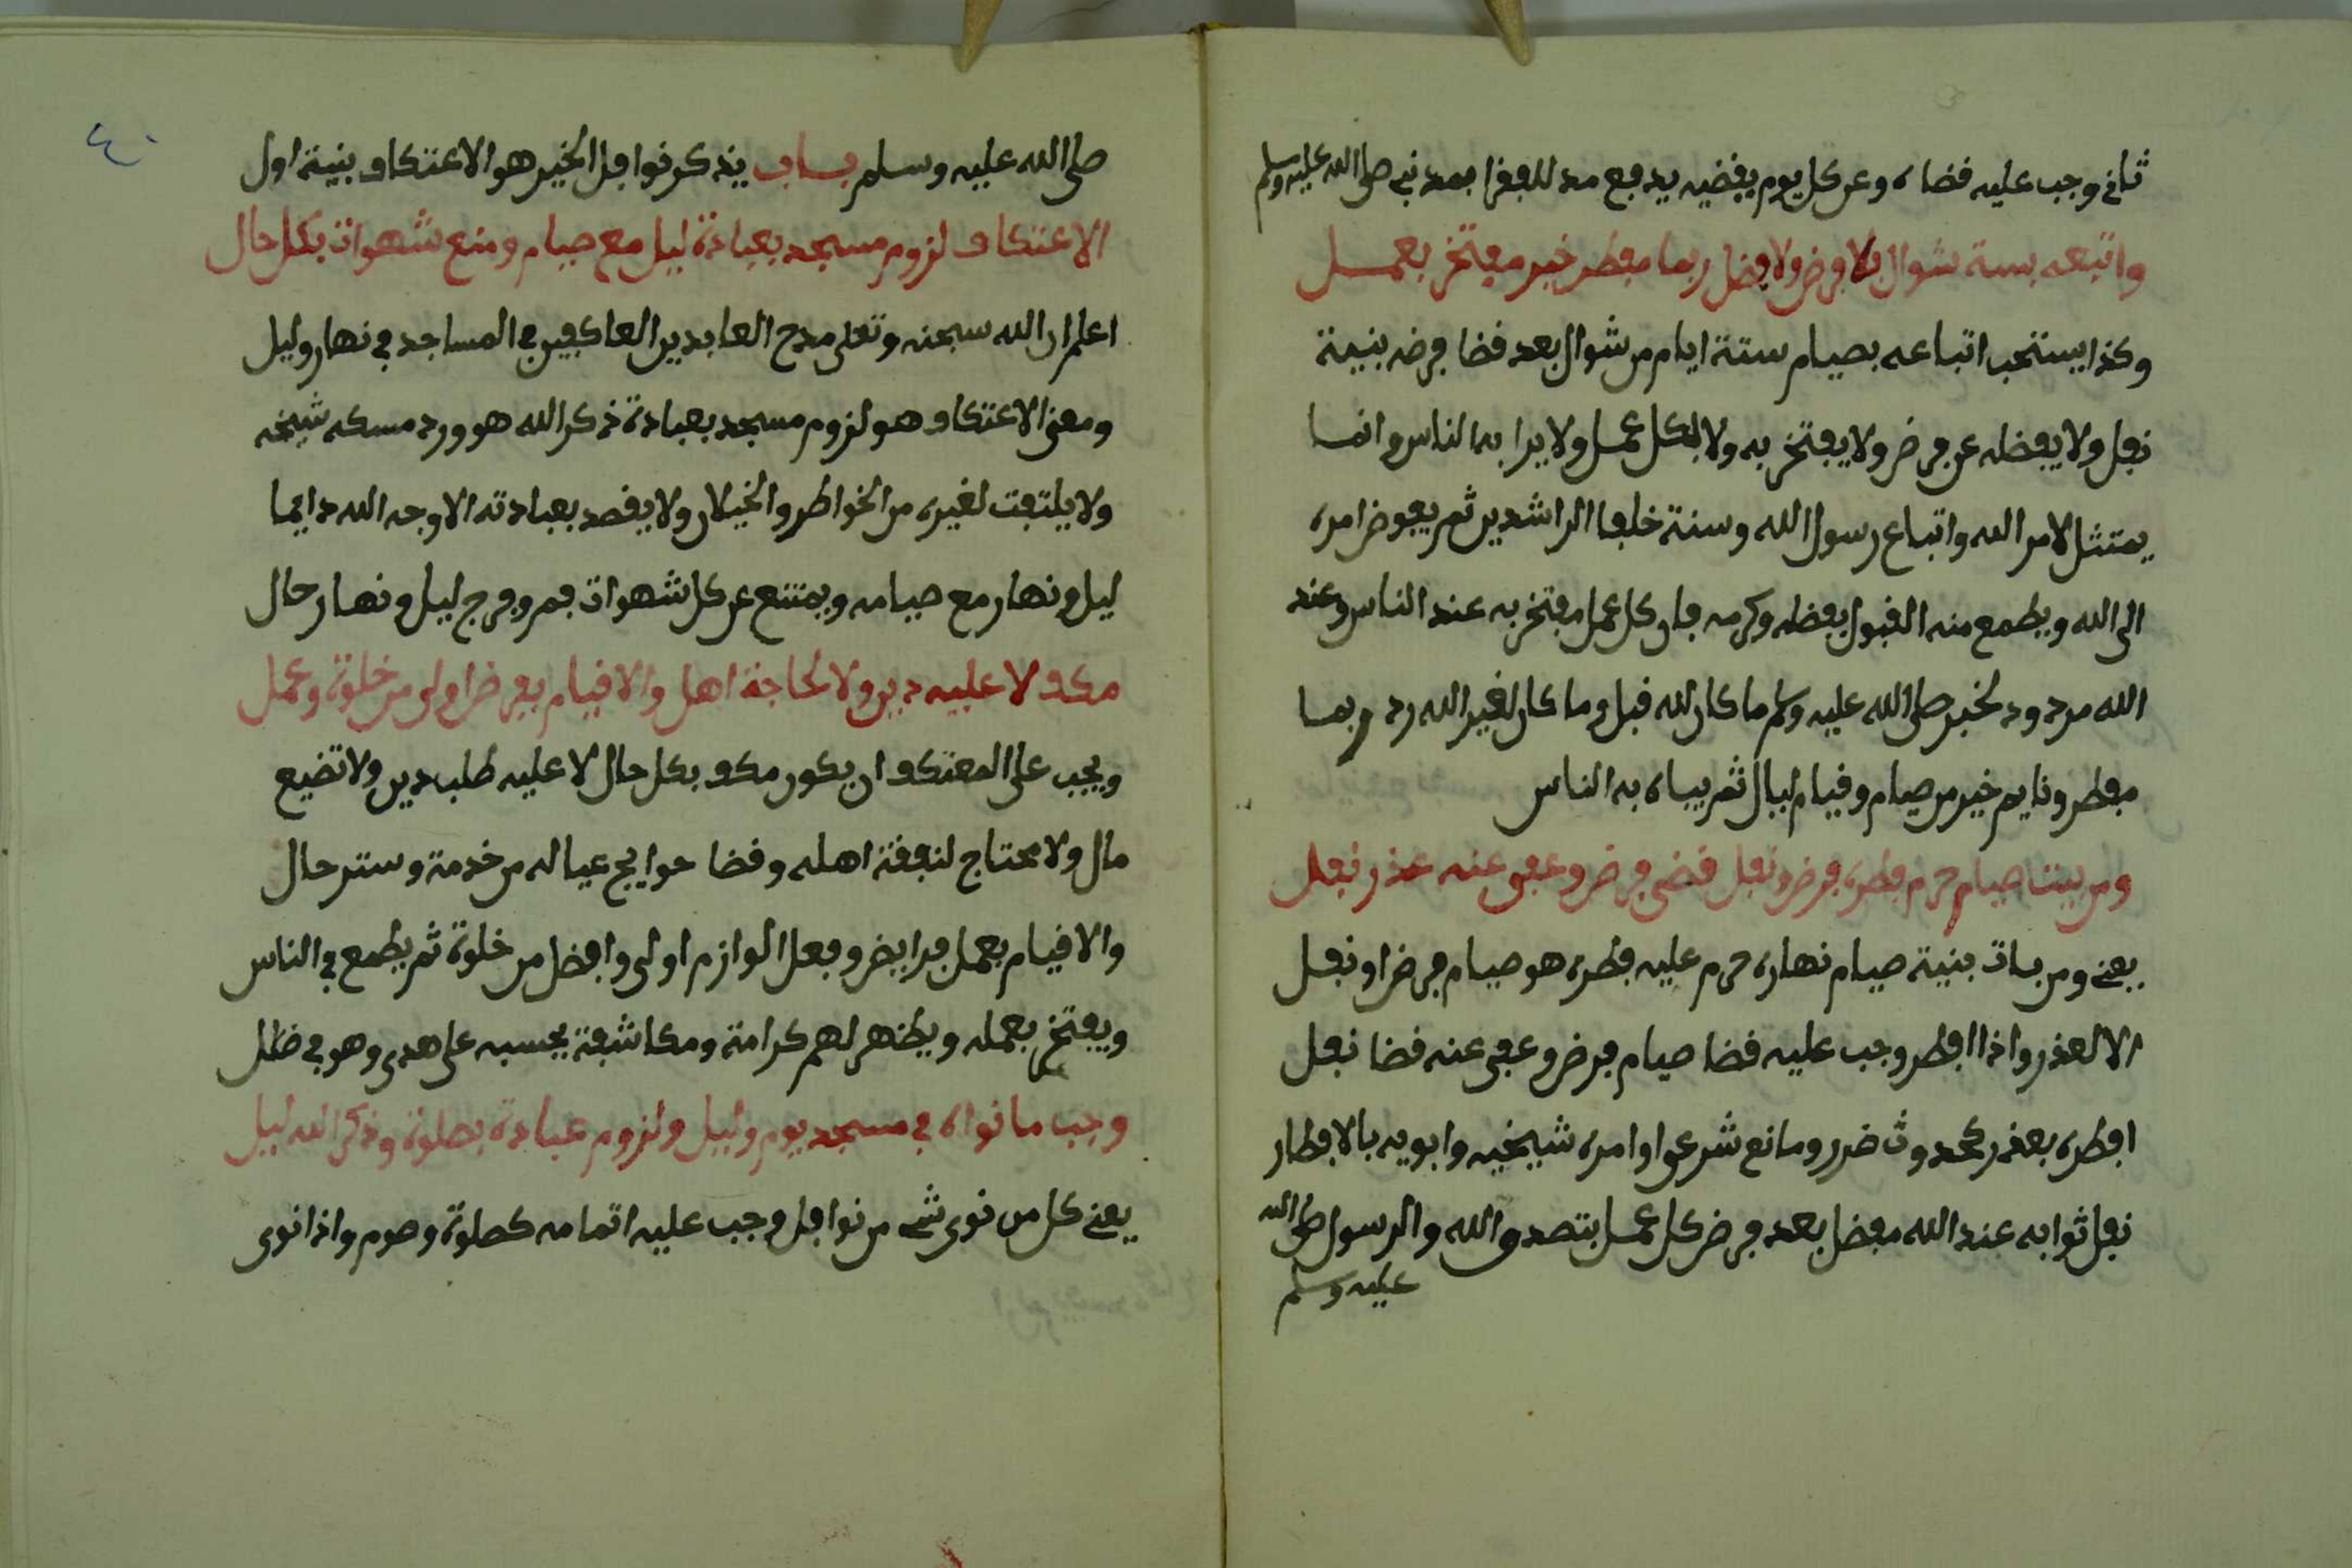 ثاني وجب عليه قضاه وعن كل يوم يقضيه يدفع مد للفقرا بمد نبي صلى الله عليه وسلم
واتبعه بستة شوال بلا فرض ولا فضل ربما مفطر خير مفتخر بعمل
وكذا يستحب اتباعه بصيام ستة ايام من شوال بعد قضا فرضه بنية
نفل ولا يفضله عن فرض ولا يفتخر به ولا لكل عمل ولا يرا به الناس وانما
يمتثل لامر الله واتباع رسول الله وسنة خلفا الراشدين ثم يفوض امره
الى الله ويطمع منه القبول بفضله وكرمه فان كل عمل مفتخر به عند الناس وعند
الله مردود لخبر صلى الله عليه وسلم ما كان لله قبل وما كان لغير الله رد وربما
مفطر ونايم خير من صيام وقيام ليال ثم يباه به الناس
ومن بيت صيام حرم فطره فرض ونفل قضى فرض وعفى عنه عذر نفل
يعني ومن بات بنية صيام نهاره حرم عليه فطره هو صيام فرض او نفل
الا لعذر واذا افطر وجب عليه قضا صيام فرض وعفى عنه قضا نفل
افطره بعذر كحدوث ضرر ومانع شرعي او امره شيخيه وابويه بالافطار
نفل ثوابه عند الله مفضل بعد فرض كل عمل بتصدق الله والرسول صلى الله
عليه وسلم
صلى الله عليه وسلم باب يذكر نوافل الخير هو الاعتكاف بنية اول
الاعتكاف لزوم مسجد بعبادة ليل مع صيام ومنع شهوات بكل حال
اعلم ان الله سبحنه وتعلى مدح العابدين العاكفين في المساجد في نهار وليل
ومعنى الاعتكاف هو لزوم مسجد بعبادة ذكر الله هو ورد مسكه شيخه
ولا يلتفت لغيره من الخواطر والخيلان ولا يقصد بعبادته الا وجه الله دايما
ليل ونهار مع صيامه ويمتنع عن كل شهوات فم وفرج ليل ونهار حال
مكف لا عليه دين ولا لحاجة اهل والا قيام بفرض اولى من خلوة وعمل
ويجب على المعتكف ان يكون مكف بكل حال لا عليه طلب دين ولا تضيع
مال ولا محتاج لنفقة اهله وقضا حوايج عياله من خدمة وستر حال
والا قيام بعمل فرايض وفعل الوازم اولى وافضل من خلوة ثم يطمع في الناس
ويفتخر بعمله ويظهر لهم كرامة ومكاشفة يحسبه على هدى وهو في ظلل
وجب ما نواه في مسجد يوم وليل ولزوم عبادة بصلوة وذكر الله ليل
يعني كل من نوى شي من نوافل وجب عليه اتمامه كصلوة وصوم واذا نوى
٤٠